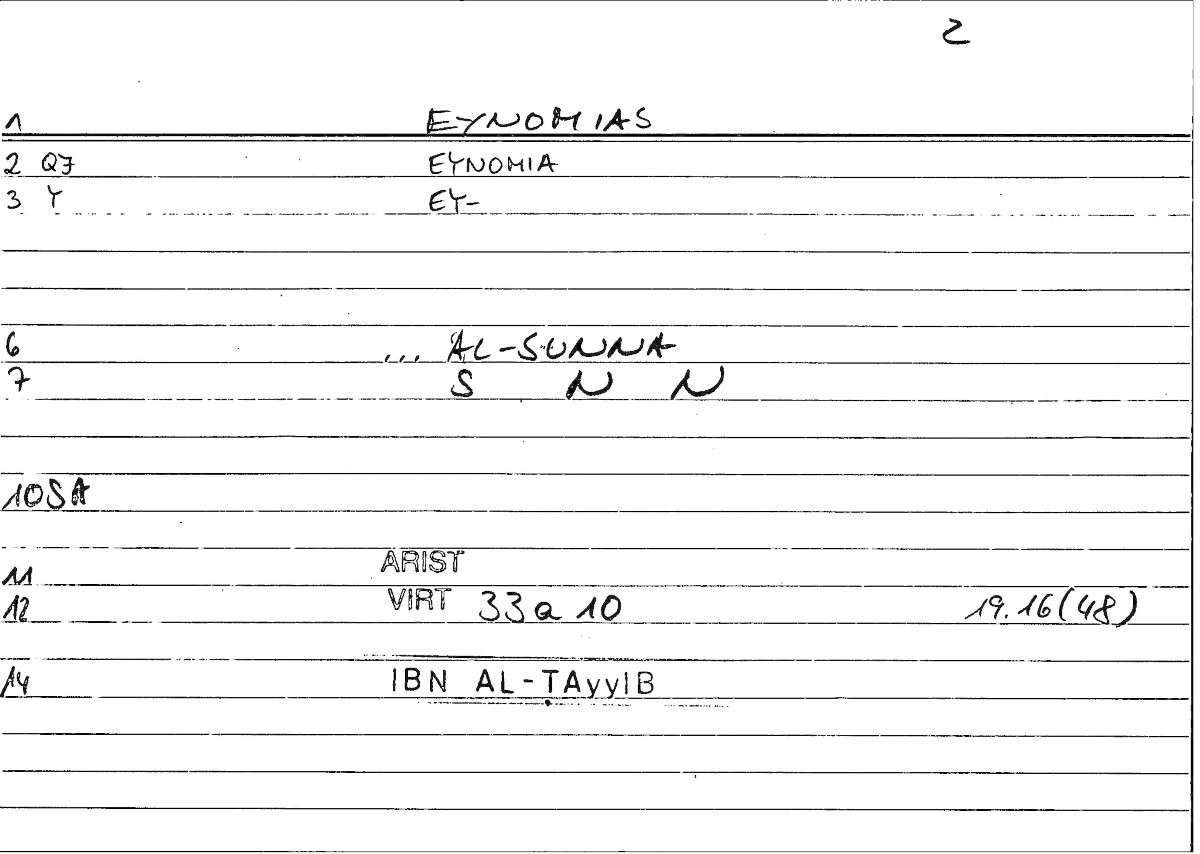 2
1 EYNOMIAS
2 QJ EYNOMIA
3 Y EY-
6 ... AL-SUNNA
7 S N N
10 SA
11 ARIST
12 VIRT 33a 10 19.16(48)
14 IBN AL-ṬAyyIB